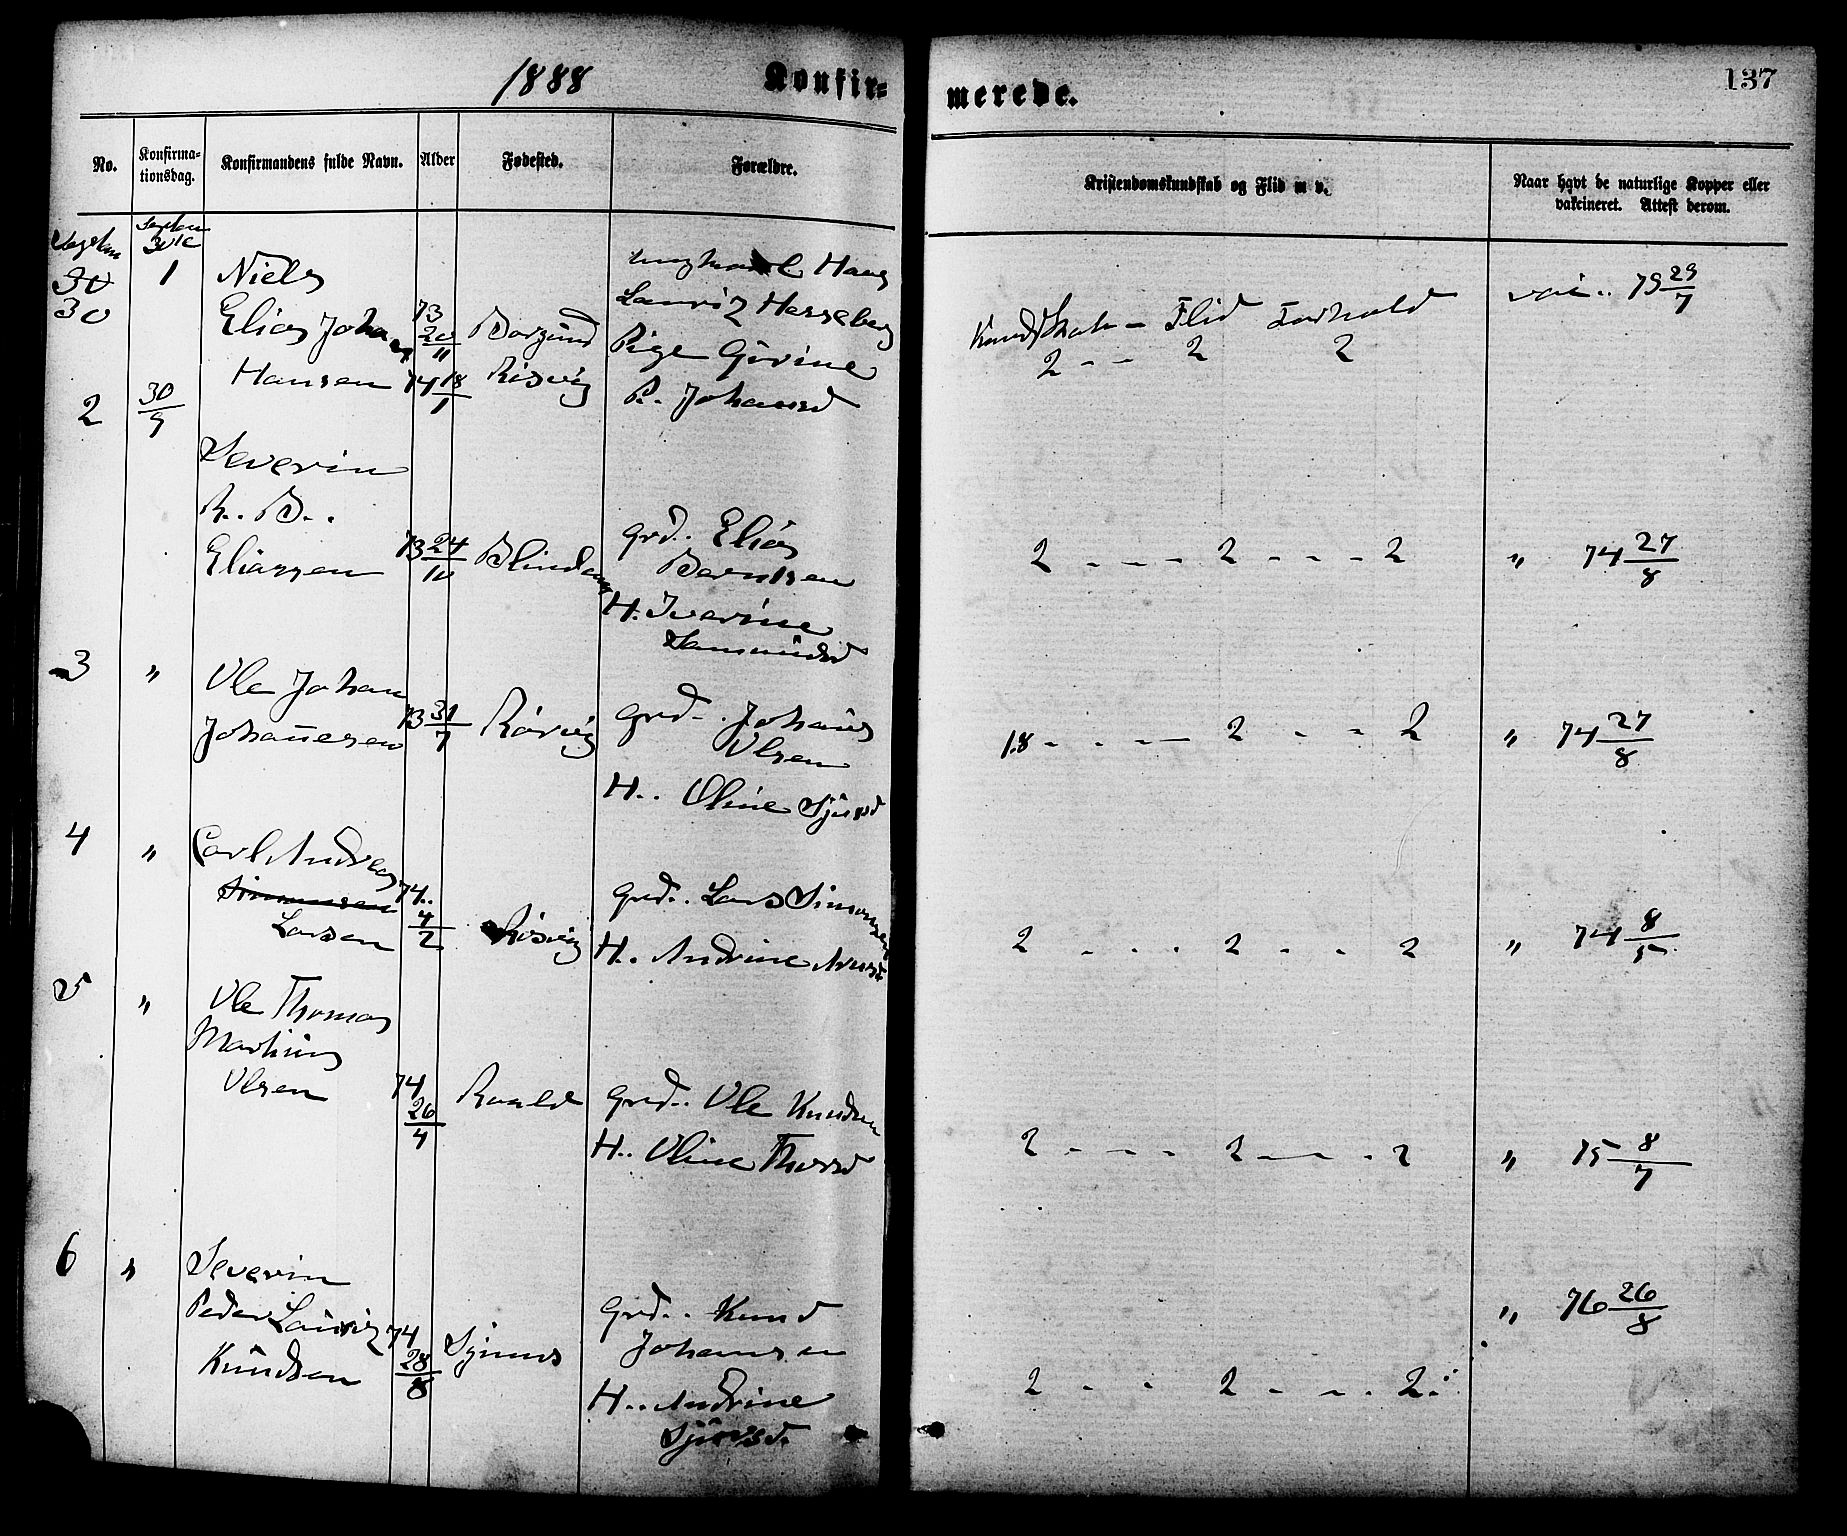 1888 Konfir=
merede.
137
No.
Konfirma-
tionsdag.
Konfirmandens fulde Navn.
Alder
Fødested.
Forældre.
Kristendomskundskab og Flid m v.
Naar havt de naturlige Kopper eller
vakcineret. Attest derom.
30
30
1
Niels
Elias Johan
Hansen
73
20/11
74 18/1
Borgund
Risvig
Lauriz
Pige Gurine
P. Johansd
2 - - 2 2
Flid Forhold
75 29/7
2
30/9
Severin
R.. B..
Eliassen
73 24/10
Blindem
grd.. Elias
Berntsen
H. Iverine
2 - - - 2 - - - 2
" 74 27/8
3
"
Ole Johan
Johannesen
73 31/7
Rørvig
grd.. Johans
Olsen
H.. Oline Sjursd
1.8 - - - 2 - - 2
" 74 27/8
4
"
Carl Andreas
Simonsen
Larsen
74..
4/2
Risvig
grd.. Lars Simonsen
H.. Andrine
2 - - - 2 - - 2
" 74 8/5
5
"
Ole Thomas
Martinus
Olsen
74
26/4
Roald
grd.. Ole Knudsen
H.. Oline
2 - - - 2 - - - 2
" 75 8/7
6
"
Severin
Peder Lauriz
Knudsen
74
28/8
grd.. Knud
Johansen
H.. Andrine
Sjursd.
2 - - 2 - - - 2.
" 76 26/8